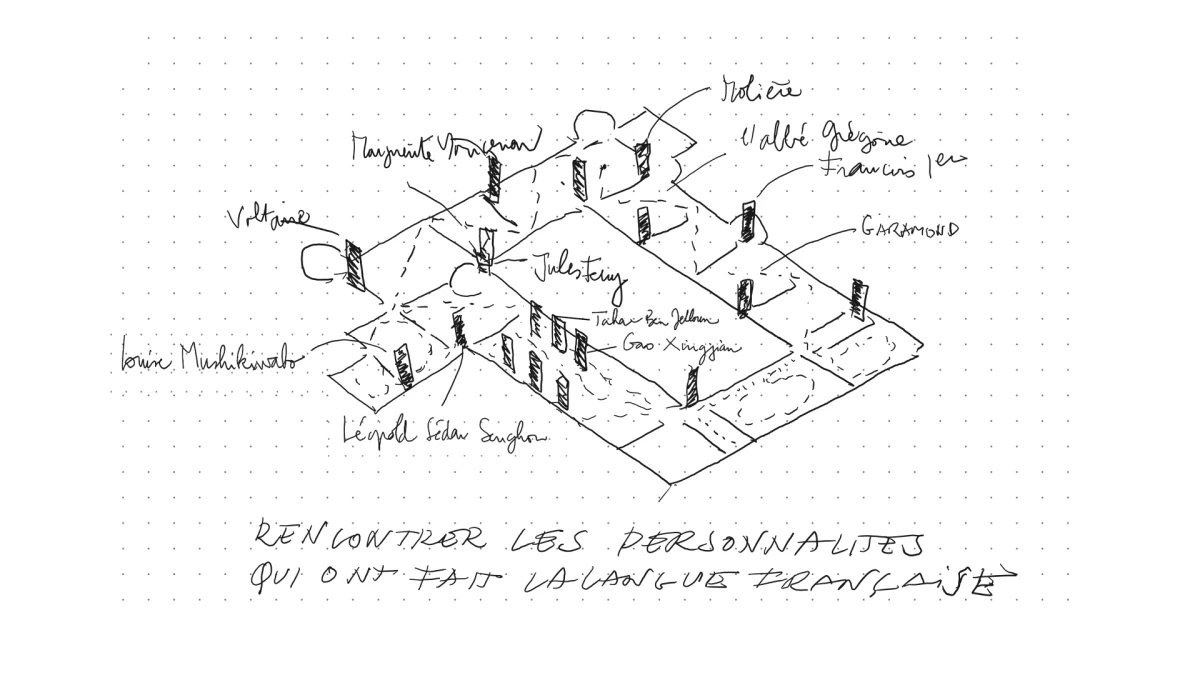 Molière
l'abbé Grégoire
Marguerite Yourcenar
Francois 1er
Voltaire
GARAMOND
Jules Ferry
Tahar Ben Jelloun
Gao Xingjian
Louise Mushikiwabo
Léopold Sédar Senghor
RENCONTRER LES PERSONNALITES
QUI ONT FAIT LA LANGUE FRANÇAISE